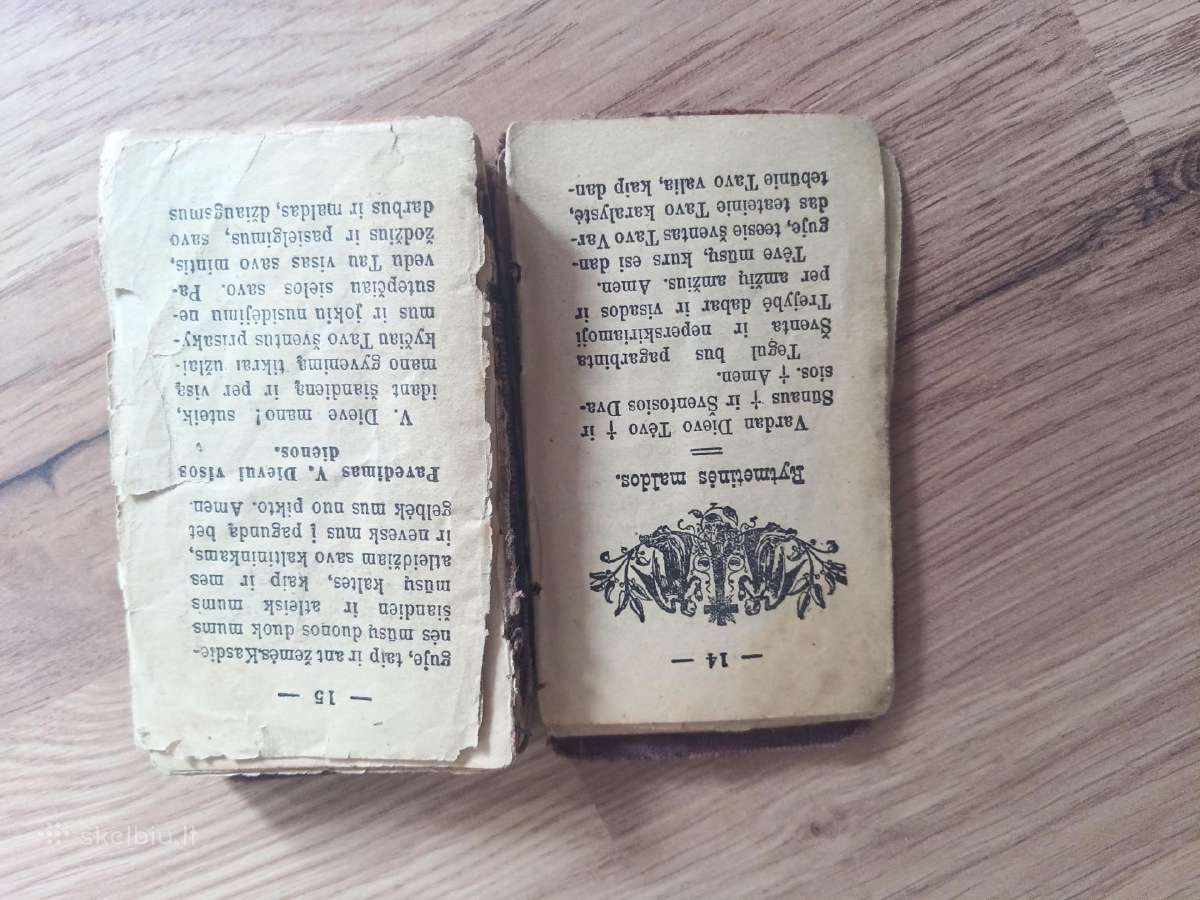 — 14 —
Rytmetinės maldos.
Vardan Dievo Tėvo † ir
Sūnaus † ir Šventosios Dva-
sios. † Amen.
Tegul bus pagarbinta
Šventa ir neperskiriamoji
Trejybė dabar ir visados ir
per amžių amžius. Amen.
Tėve mūsų, kurs esi dan-
guje, teesie šventas Tavo Var-
das teateinie Tavo karalystė,
tebūnie Tavo valia, kaip dan-
— 15 —
guje, taip ir ant žemės.Kasdie-
nės mūsų duonos duok mums
šiandien ir atleisk mums
mūsų kaltes, kaip ir mes
atleidžiam savo kaltininkams,
ir nevesk mus į pagundą bet
gelbėk mus nuo pikto. Amen.
Pavedimas V. Dievui visos
dienos.
V. Dieve mano! suteik,
idant šiandieną ir per visą
mano gyvenimą tikrai užlai-
kyčiau Tavo šventus prisaky-
mus ir jokiu nusidėjimu ne-
sutepčiau sielos savo. Pa-
vedu Tau visas savo mintis,
žodžius ir pasielgimus, savo
darbus ir maldas, džiaugsmus
skelbiu.lt